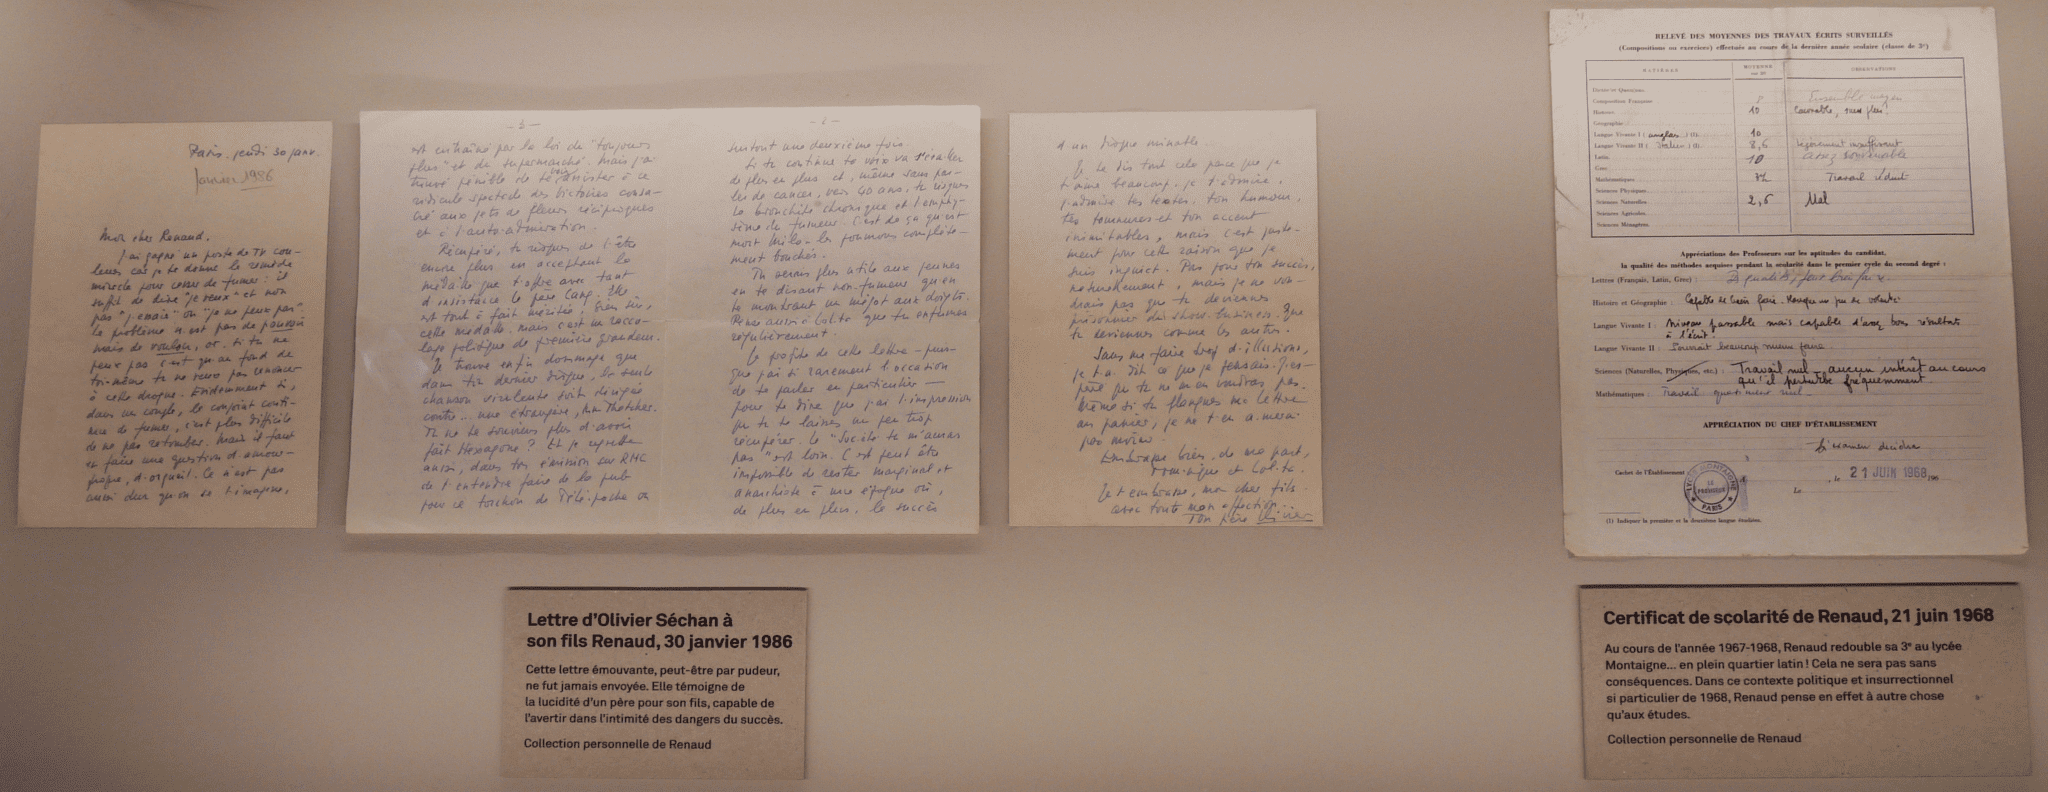 Paris. jeudi 30 janv.
Janvier 1986
Mon cher Renaud,
J'ai gagné un poste de TV cou-
leurs car je te donne le remède
miracle pour cesser de fumer : il
suffit de dire "je veux" et non
pas "j'essaie" ou "je ne peux pas"
le problème n'est pas de pouvoir
mais de vouloir, or, si tu ne
peux pas c'est qu'au fond de
toi-même tu ne veux pas renoncer
à cette drogue. Évidemment si,
dans un couple, le conjoint conti-
nue de fumer, c'est plus difficile
de ne pas retomber. Mais il faut
en faire une question d'amour-
propre, d'orgueil. Ce n'est pas
aussi dur qu'on se l'imagine,
- 3 -
est entraîné par la loi du "toujours
plus" et du supermarché. Mais j'ai
trouvé pénible de te voir assister à ce
ridicule spectacle des Victoires consa-
cré aux jets de fleurs réciproques
et à l'auto-admiration.
Récupéré, tu risques de l'être
encore plus en acceptant la
médaille que t'offre avec tant
d'insistance le père Lang. Elle
est tout à fait méritée, bien sûr,
cette médaille, mais c'est un racco-
lage politique de première grandeur.
Je trouve enfin dommage que
dans ton dernier disque, la seule
chanson virulente soit dirigée
contre... une étrangère, Mme Thatcher.
Tu ne te souviens plus d'avoir
fait Hexagone ? Et je regrette
aussi, dans ton émission sur RMC
de t'entendre faire de la pub
pour ce torchon de Télé-poche ou
- 2 -
surtout une deuxième fois.
Si tu continues ta voix va s'érailler
de plus en plus et, même sans par-
ler de cancer, vers 40 ans, tu risques
la bronchite chronique et l'emphy-
sème du fumeur. C'est de ça qu'est
mort les poumons complète-
ment bouchés.
Tu serais plus utile aux jeunes
en te disant non-fumeur qu'en
te montrant un mégot aux doigts.
Pense aussi à Lolita que tu enfumes
régulièrement.
Je profite de cette lettre - puis-
que j'ai si rarement l'occasion
de te parler en particulier —
pour te dire que j'ai l'impression
que tu te laisses un peu trop
récupérer. Le "Société tu m'auras
pas" est loin. C'est peut-être
impossible de rester marginal et
anarchiste à une époque où,
de plus en plus, le succès
d'un disque minable.
Je te dis tout cela parce que je
t'aime beaucoup, je t'admire,
j'admire tes textes, ton humour,
tes tournures et ton accent
inimitables, mais c'est juste-
ment pour cette raison que je
suis inquiet. Pas pour ton succès,
naturellement, mais je ne vou-
drais pas que tu deviennes
prisonnier du show-business. Que
tu deviennes comme les autres.
Sans me faire trop d'illusions,
je t'ai dit ce que je pensais. J'es-
père que tu ne m'en voudras pas.
Même si tu flanques ma lettre
au panier, je ne t'en aimerai
pas moins.
Embrasse bien, de ma part,
Dominique et Lolita.
Je t'embrasse, mon cher fils
avec toute mon affection.
Ton père Olivier
RELEVÉ DES MOYENNES DES TRAVAUX ÉCRITS SURVEILLÉS
(Compositions ou exercices) effectués au cours de la dernière année scolaire (classe de 3e)
MATIÈRES MOYENNE sur 20 OBSERVATIONS
Dictée et Questions
Composition Française 8 Ensemble moyen
Histoire 10 Convenable, sans plus !
Géographie
Langue Vivante I (anglais) (1) 10
Langue Vivante II (Italien) (1) 8,5 légèrement insuffisant
Latin 10 assez convenable
Grec
Mathématiques Travail réduit
Sciences Physiques
Sciences Naturelles 2,5 Mal
Sciences Agricoles
Sciences Ménagères
Appréciations des Professeurs sur les aptitudes du candidat,
la qualité des méthodes acquises pendant la scolarité dans le premier cycle du second degré :
Lettres (Français, Latin, Grec) : peut bien faire
Histoire et Géographie : Capable de bien faire. Manque un peu de volonté
Langue Vivante I : Niveau passable mais capable d'assez bons résultats
à l'écrit.
Langue Vivante II : Pourrait beaucoup mieux faire
Sciences (Naturelles, Physiques, etc.) : Travail nul - aucun intérêt au cours
qu'il perturbe fréquemment
Mathématiques : Travail quasiment nul
APPRÉCIATION DU CHEF D'ÉTABLISSEMENT
L'examen décidera
Cachet de l'Établissement
LYCÉE MONTAIGNE
LE PROVISEUR
PARIS
, le 21 JUIN 1968 196
Le
(1) Indiquer la première et la deuxième langue étudiées.
Lettre d'Olivier Séchan à
son fils Renaud, 30 janvier 1986
Cette lettre émouvante, peut-être par pudeur,
ne fut jamais envoyée. Elle témoigne de
la lucidité d'un père pour son fils, capable de
l'avertir dans l'intimité des dangers du succès.
Collection personnelle de Renaud
Certificat de scolarité de Renaud, 21 juin 1968
Au cours de l'année 1967-1968, Renaud redouble sa 3e au lycée
Montaigne... en plein quartier latin ! Cela ne sera pas sans
conséquences. Dans ce contexte politique et insurrectionnel
si particulier de 1968, Renaud pense en effet à autre chose
qu'aux études.
Collection personnelle de Renaud